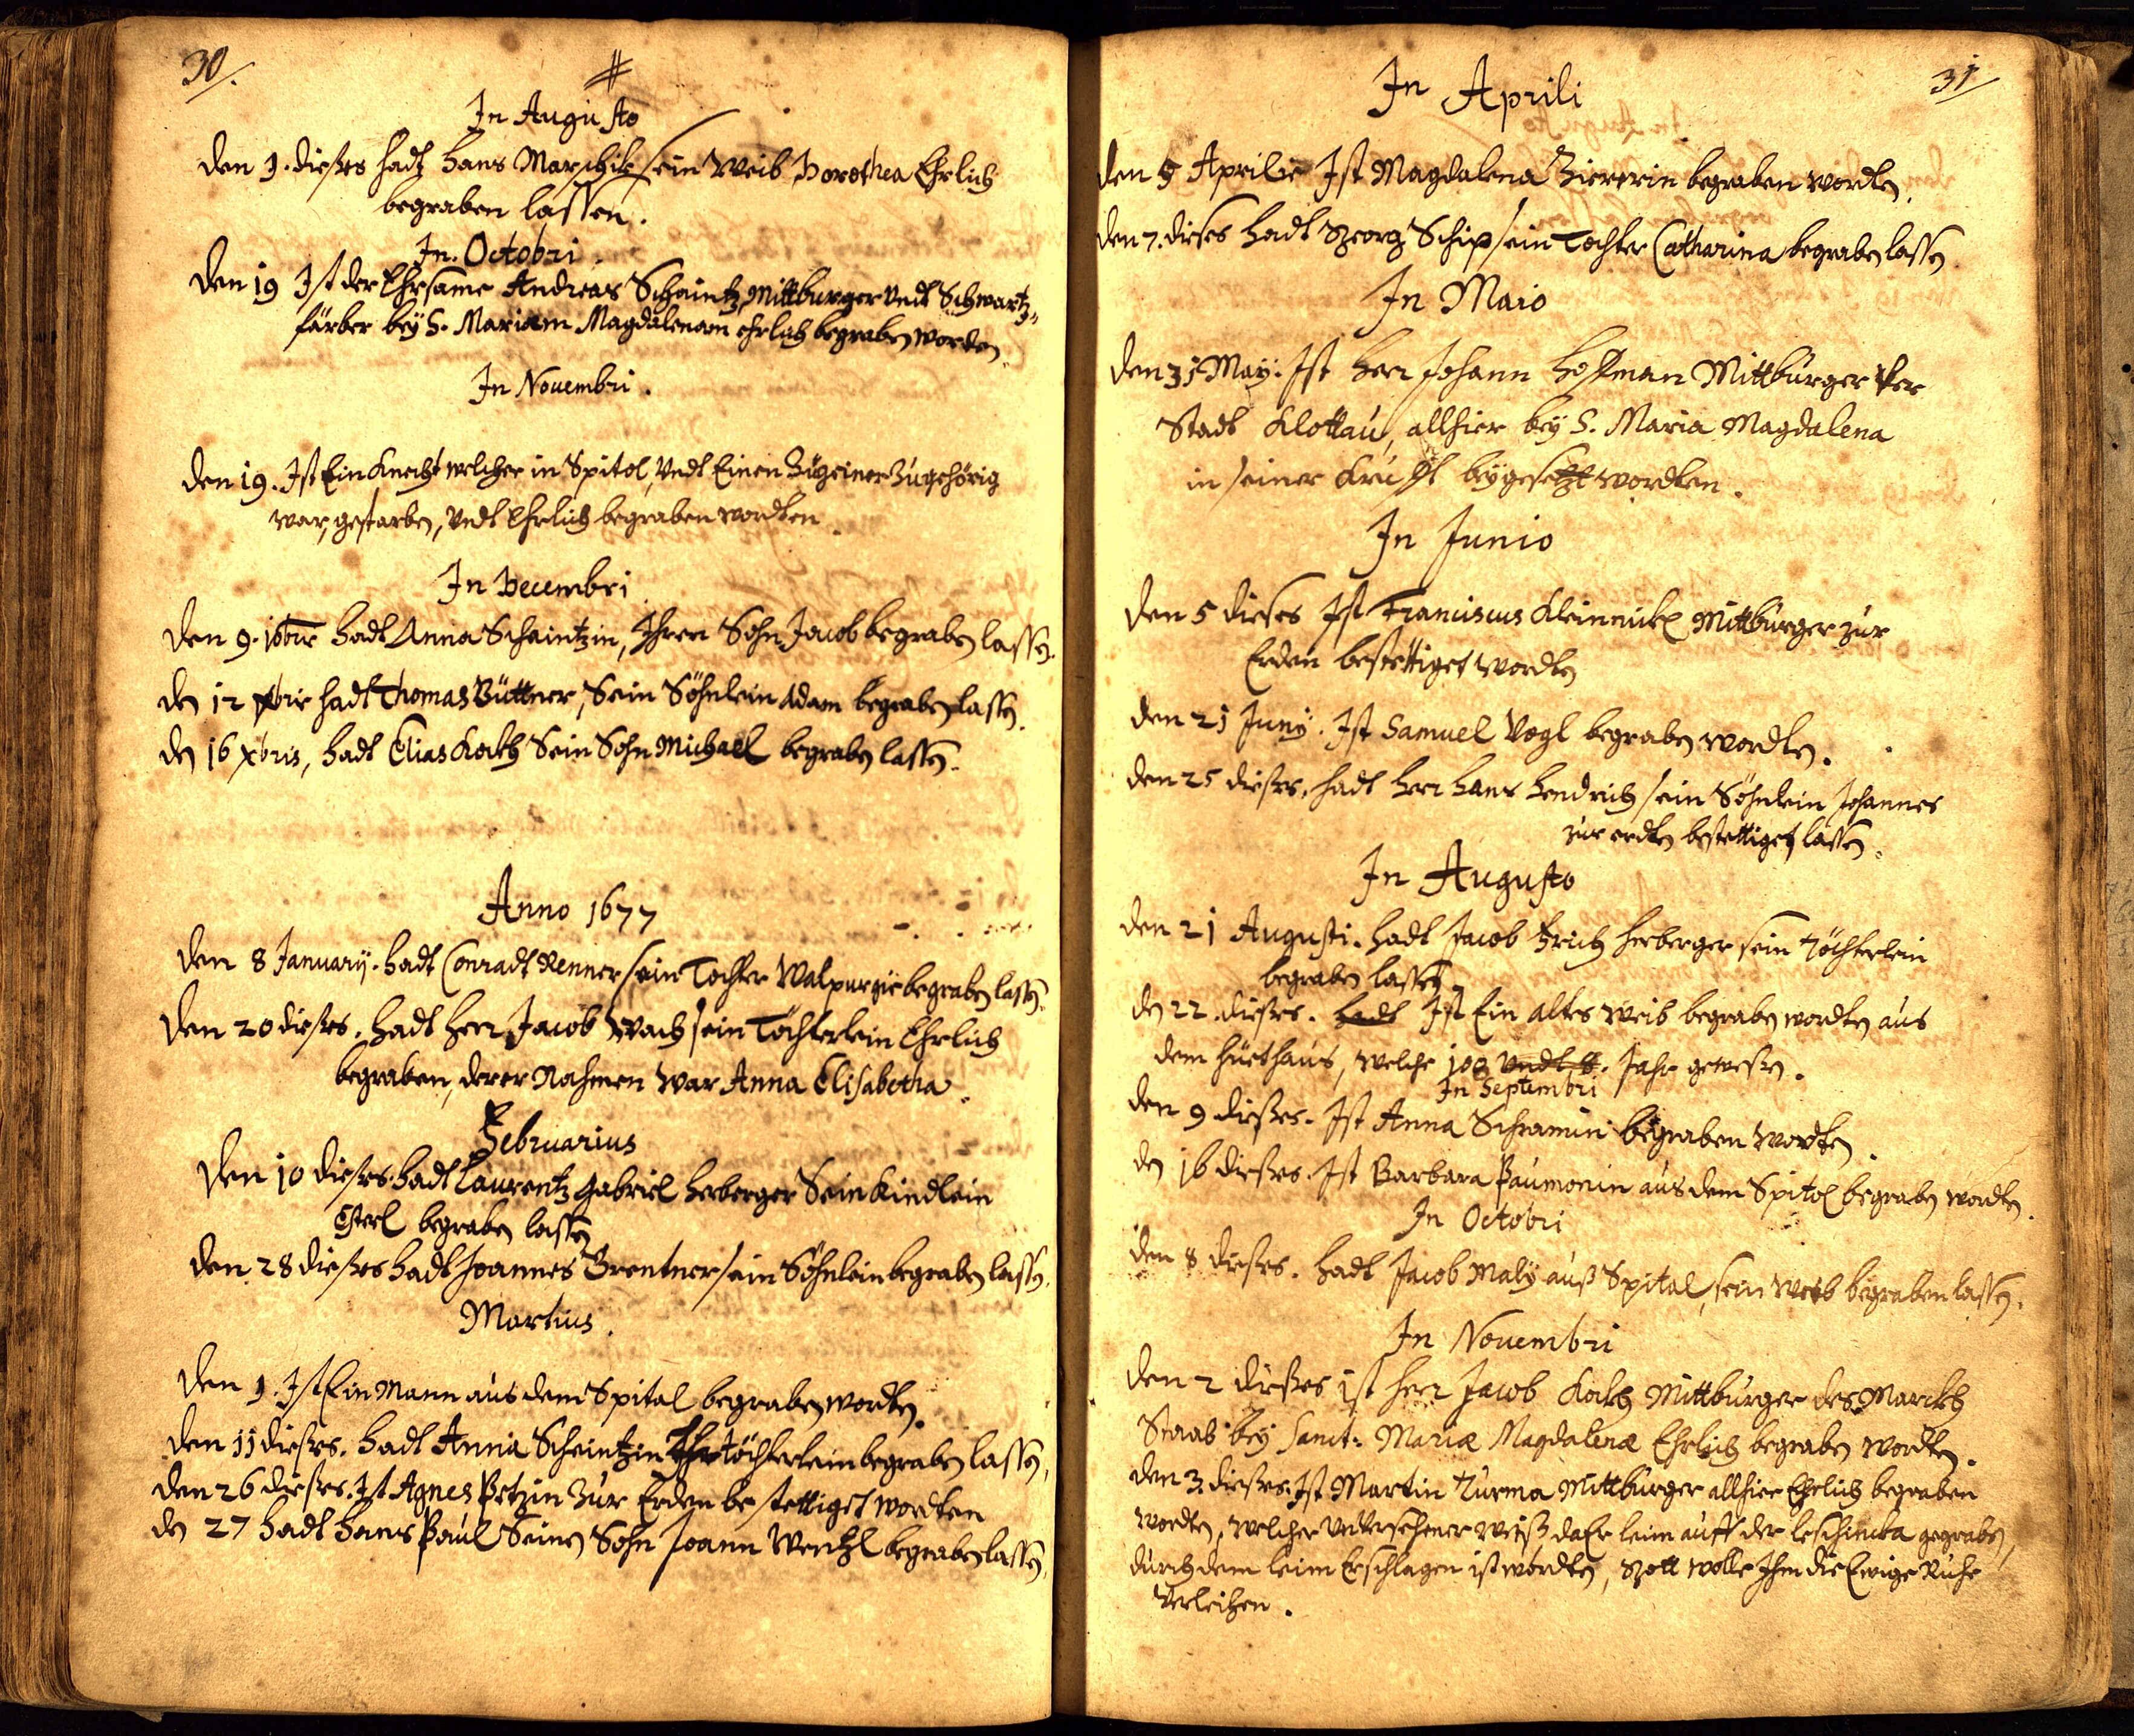 30
In Augusto
den 1. dießes hadt Hans Marschik sein Weib Dorothea Ehrlich
begraben lassen.
In Octobri.
den 19 Ist der Ehrsame Andreas Schaintz, Mittburger undt Schwartz-
färber beÿ S. Mariam Magdalenam ehrlich begraben worden.
In Novembri.
den 19. Ist Ein Knecht welcher in Spitol, undt Einen Zügeiner Zugehörig
war, gestarben, undt Ehrlich begraben wordten
In Decembri
den 9. 10bris hadt Anna Schaintzin, Ihren Sohn Jacob begraben lassen.
den 12 Xbris hadt Thomas Büttner, Sein Söhnlein Adam begraben lassen.
den 16 Xbris, hadt Elias Kockh Sein Sohn Michael begraben lassen.
Anno 1677
den 8 Januarÿ. hadt Conradt Renner sein Tochter Walpurgis begraben lassen.
den 20 dießes. hadt Herr Jacob Wach sein Töchterlein Ehrlich
begraben, derer Nahmen war Anna Elisabetha.
Februarius
den 10 dießes hadt Laurentz Gabriel Herberger Sein Kindlein
begraben lassen
den 28 dießes hadt Joannes Brentner sein Söhnlein begraben lassen.
Martius.
den 9. Ist Ein Mann aus dem Spital begraben wordten.
den 11 dießes. hadt Anna Scheintzin Ihr töchterlein begraben lassen.
den 26 dießes. Ist Agnes Petzin Zur Erden bestettiget wordten
den 27 hadt Hans Paul Seinen Sohn Joann Wentzl begraben lassen.
31
In Aprili
den 5 Aprilis Ist Magdalena begraben wordten.
den 7. dieses hadt Georg Schip sein Tochter Catharina begraben lassen
In Maio
den 31 Maÿ. Ist Herr Johann Hoffman Mittburger der
Stadt Klottau, allhier beÿ S. Maria Magdalena
in seiner Krufft beÿgesetzt wordten.
In Junio
den 5 dieses Ist Franciscus Mittburger zur
Erden bestettiget wordten
den 21 Junÿ. Ist Samuel Vogl begraben wordten.
den 25 dießes. hadt Herr Hans Hendrich sein Söhnlein Johannes
zur erdten bestettigen lassen.
In Augusto
den 21 Augusti. hadt Jacob Herberger sein töchterlein
begraben lassen.
den 22. dießes. hadt Ist Ein altes Weib begraben wordten aus
dem Hüethaus, welche 100 undt 8. Jahr geweßen.
In Septembri
den 9 dießes. Ist Anna Schramin begraben wordten.
den 16 dießes. Ist Barbara Paumonin aus dem Spitol begraben wordten.
In Octobri
den 8 dießes. hadt Jacob Malÿ auß Spital, sein Weib begraben lassen.
In Novembri
den 2 dießes ist Herr Jacob Kockh Mittburger des Marckh
Staab beÿ Sanct: Mariæ Magdalenæ Ehrlich begraben wordten.
den 3. dießes Ist Martin Turma Mittburger allhier Ehrlich begraben
wordten, welcher unversehener weiß, da Er leim auff der leschincka gegraben,
durch dem leim Erschlagen ist wordten, Gott wolle Ihm die Ewige Ruhe
verleihen.